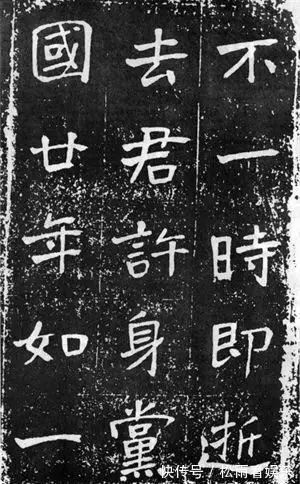 不一時即逝
去君許身黨
國廿年如一
快传号/松雨看娱乐